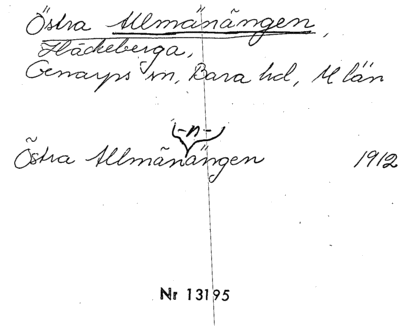 Östra Allmänängen,
Häckeberga,
Genarps sn, Bara hd, M län
-n-
Östra Allmänängen 1912
Nr 13195